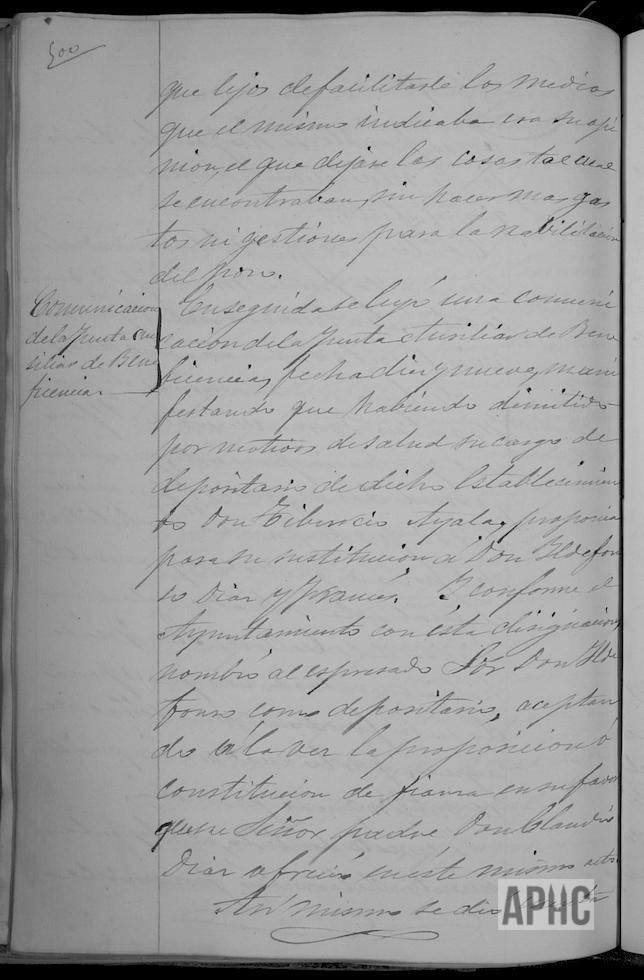 500
que lejos de facilitarle los medios
que el mismo indicaba era su opi
nion, el que dejase las cosas tal cual
se encontraban, sin hacer mas gas
tos ni gestiones para la habilitacion
del
Comunicacion
de la Junta au
siliar de Bene
ficencia.
Enseguida se leyó una comuni
cacion de la Junta Ausiliar de Bene
ficencia, fecha diez y nueve, mani
festando que habiendo dimitido
por motivos de salud su cargo de
depositario de dicho Establecimien
to Don Tiburcio Ayala, proponia
para su sustitucion á Don Ildefon
so Diaz y Y conforme el
Ayuntamiento con esta designacion,
nombró al espresado Sor Don Ilde
fonso como depositario, aceptan
do á la vez la proposicion ó
constitucion de fianza en su favor
que su Señor padre Don Claudio
Diaz ofreció en este mismo acto.
Asi mismo se dió cuenta
APHC